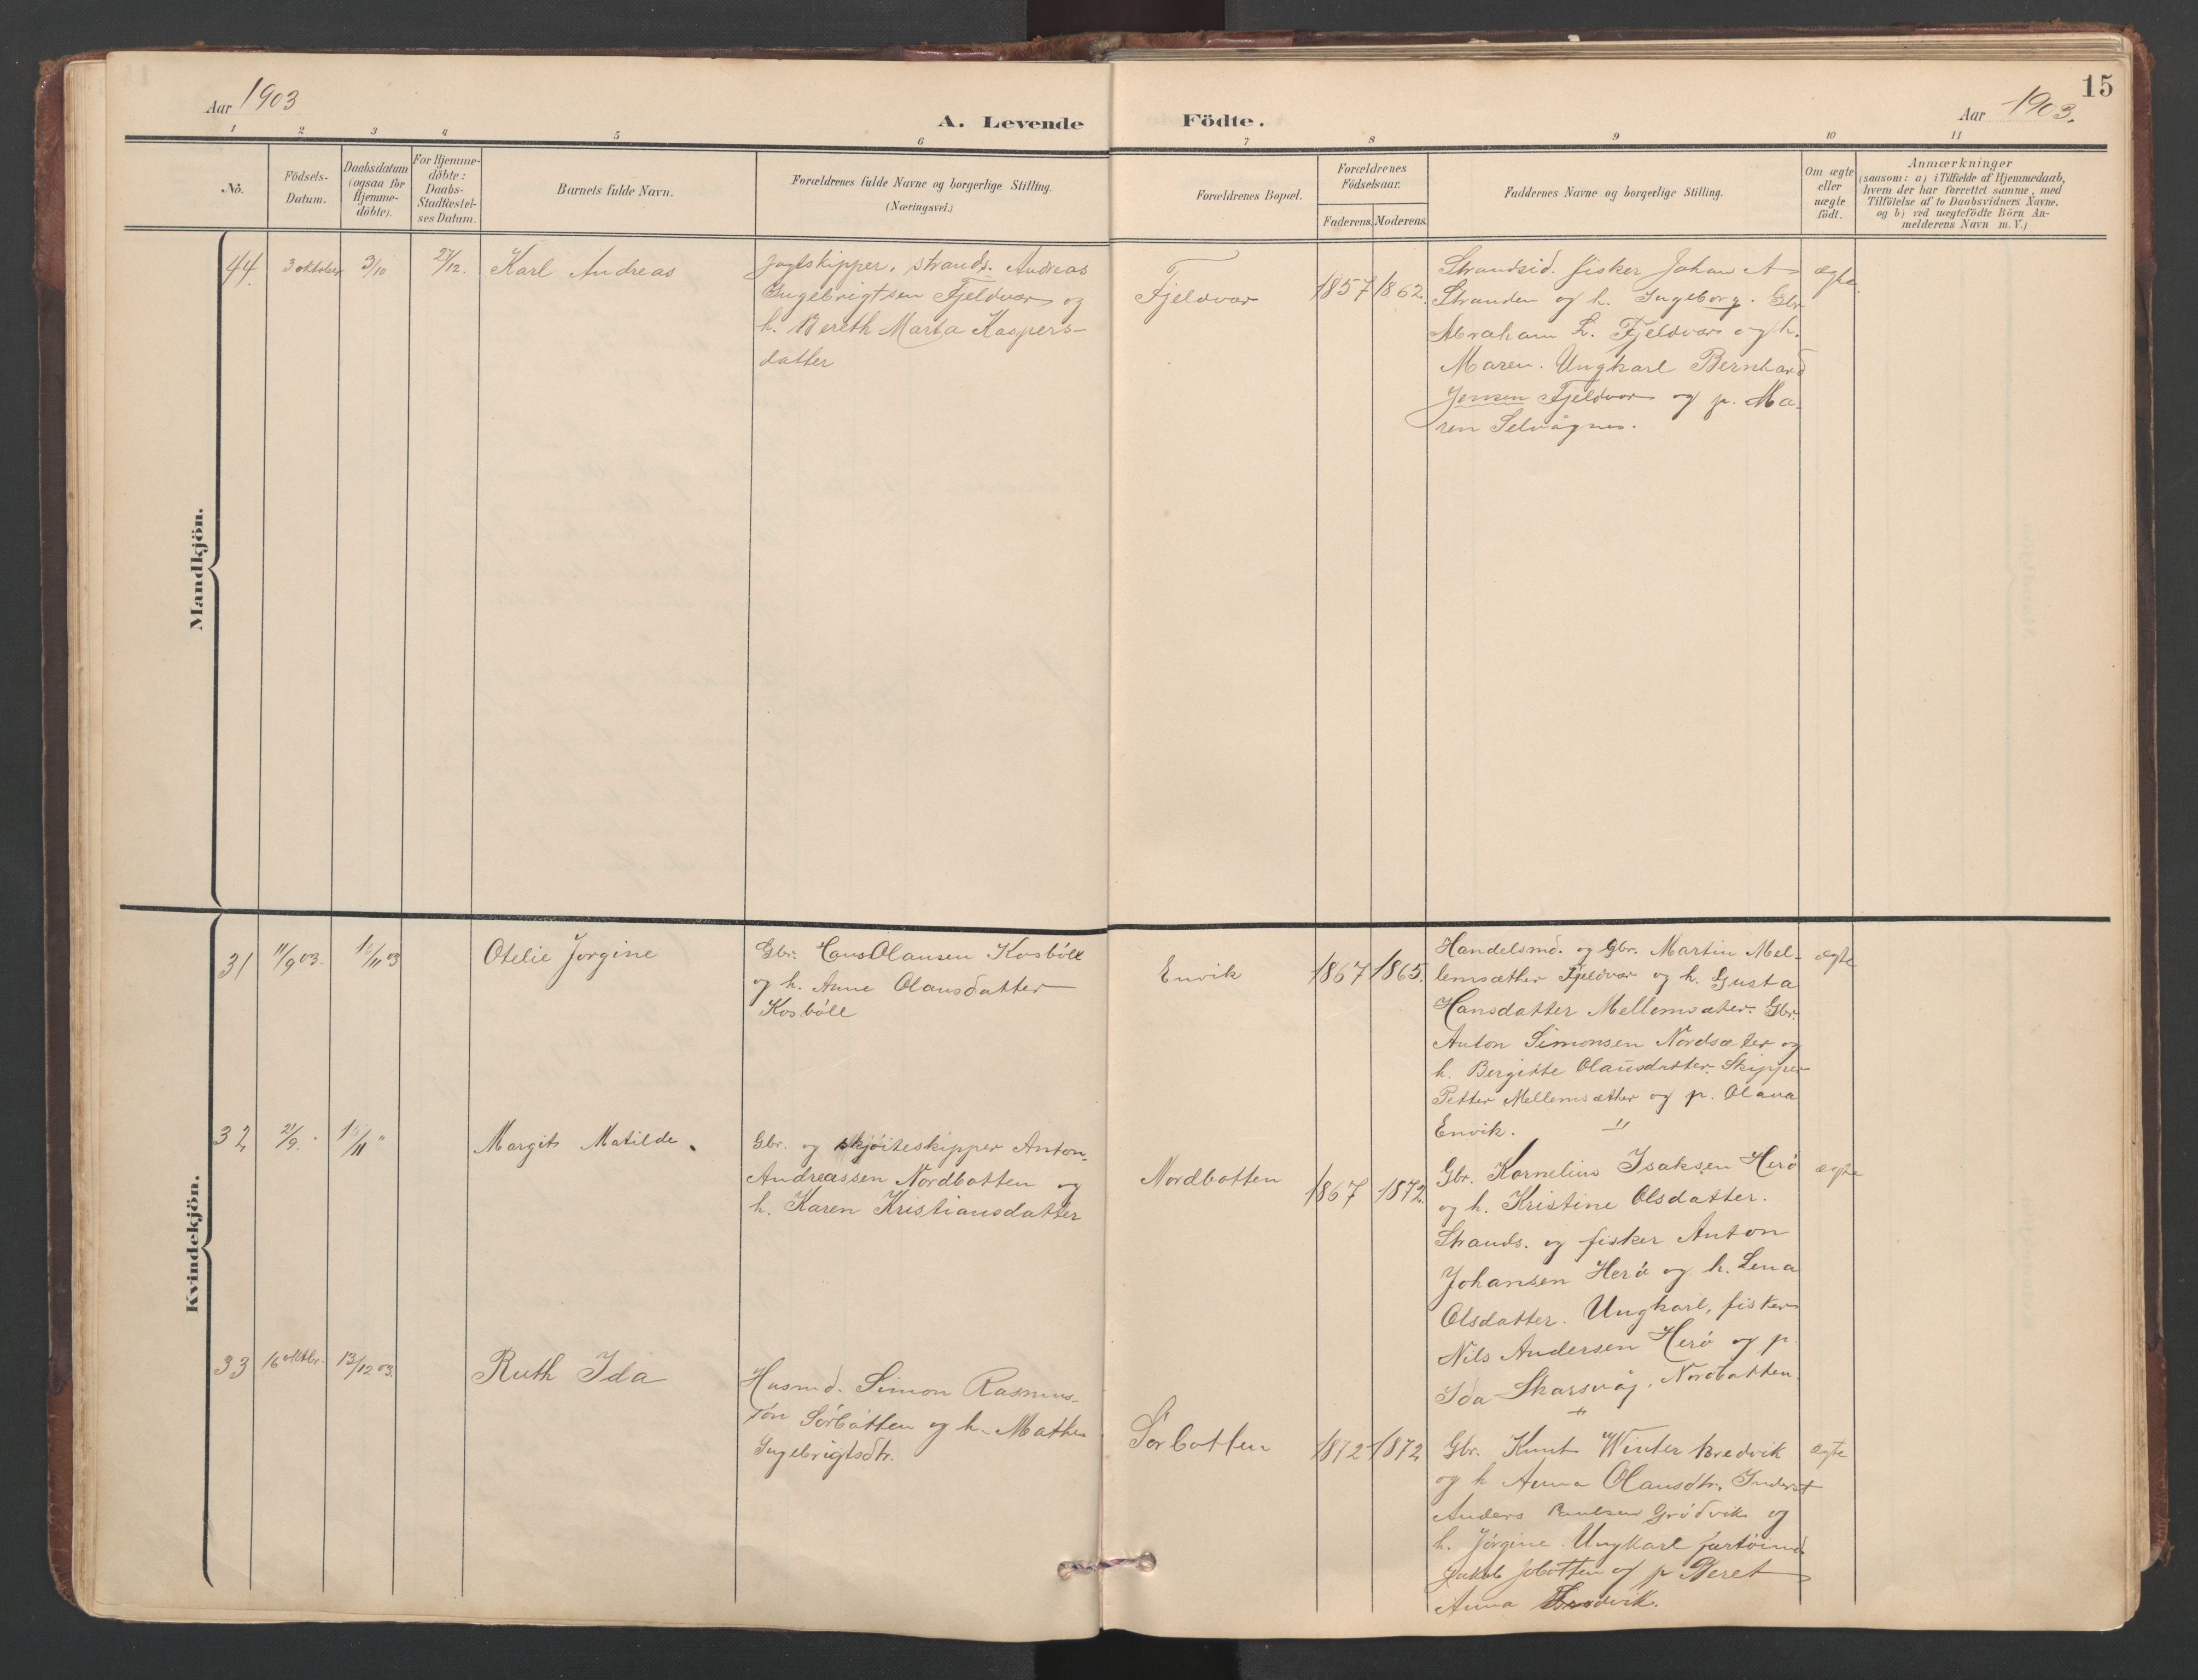 15
Aar 1903
Aar 1903.
A. Levende Födte.
1 2 3 4 5 6 7 8 9 10 11
No.
Födsels-
Datum.
Daabsdatum
(ogsaa for
Hjemme-
döbte).
For Hjemme-
döbte:
Daabs-
Stadfæstel-
ses Datum.
Barnets fulde Navn.
Forældrenes fulde Navne og borgerlige Stilling.
(Næringsvei.)
Forældrenes Bopæl.
Forældrenes
Födselsaar.
Faderens. Moderens.
Faddernes Navne og borgerlige Stilling.
Om ægte
eller
uægte
födt.
Anmærkninger
(saasom: a) i Tilfælde af Hjemmedaab,
hvem der har forrettet samme, med
Tilföielse af to Daabsvidners Navne.
og b) ved uægtefödte Börn An-
melderens Navn m. V.)
Mandkjön.
44. 3 oktober 3/10 27/12. Karl Andreas
Jagtskipper, strands. Andreas
Ingebrigtsen Fjeldvær og
h. Bereth Marta Kaspers-
datter
Fjeldvær 1857 1862.
Strandsid. fisker Johan A
Stranden og h. Ingeborg. Gbr.
Abraham L. Fjeldvær og h.
Maren. Ungkarl Bernhard
Jensen Fjeldvær og p. Ma-
ren Selvågnes.
ægte.
Kvindekjön.
31 11/9 03. 15/11 03 Otelie Jorgine
Gbr. Hans Olausen Kosbøll
og h. Anne Olausdatter
Kosbøll
Envik 1867 1865.
Handelsmd. og Gbr. Martin Mel-
lemsæther Fjeldvær og h. Gusta
Hansdatter Mellemsæter. Gbr.
Anton Simonsen Nordsæter og
h. Bergitte Olausdatter. Skipper
Petter Mellemsæther og p. Olava
Envik. "
ægte
32 21/9. " 15/11 " Margit Matilde.
Gbr. og skjöiteskipper Anton
Andreassen Nordbotten og
h. Karen Kristiansdatter
Nordbotten 1867 1872
Gbr. Kornelius Isaksen Herø
og h. Kristine Olsdatter.
Strands. og fisker Anton
Johansen Herø og h. Lena
Olsdatter. Ungkarl, fisker
Nils Andersen Herø og p.
Ida Skarsvåg, Nordbotten.
"
ægte
33 16 oktbr. 13/12 03. Ruth Ida
Husmd. Simon Rasmus-
søn Sörbotten og h. Mathea
Ingebrigtsdtr.
Sörbotten 1872 1872
Gbr. Knut Winter Bredvik
og h Anna Olausdtr. Inderst
Anders Paulsen Grødvik og
h. Jørgine. Ungkarl
Jakob og p Beret
Anna
ægte